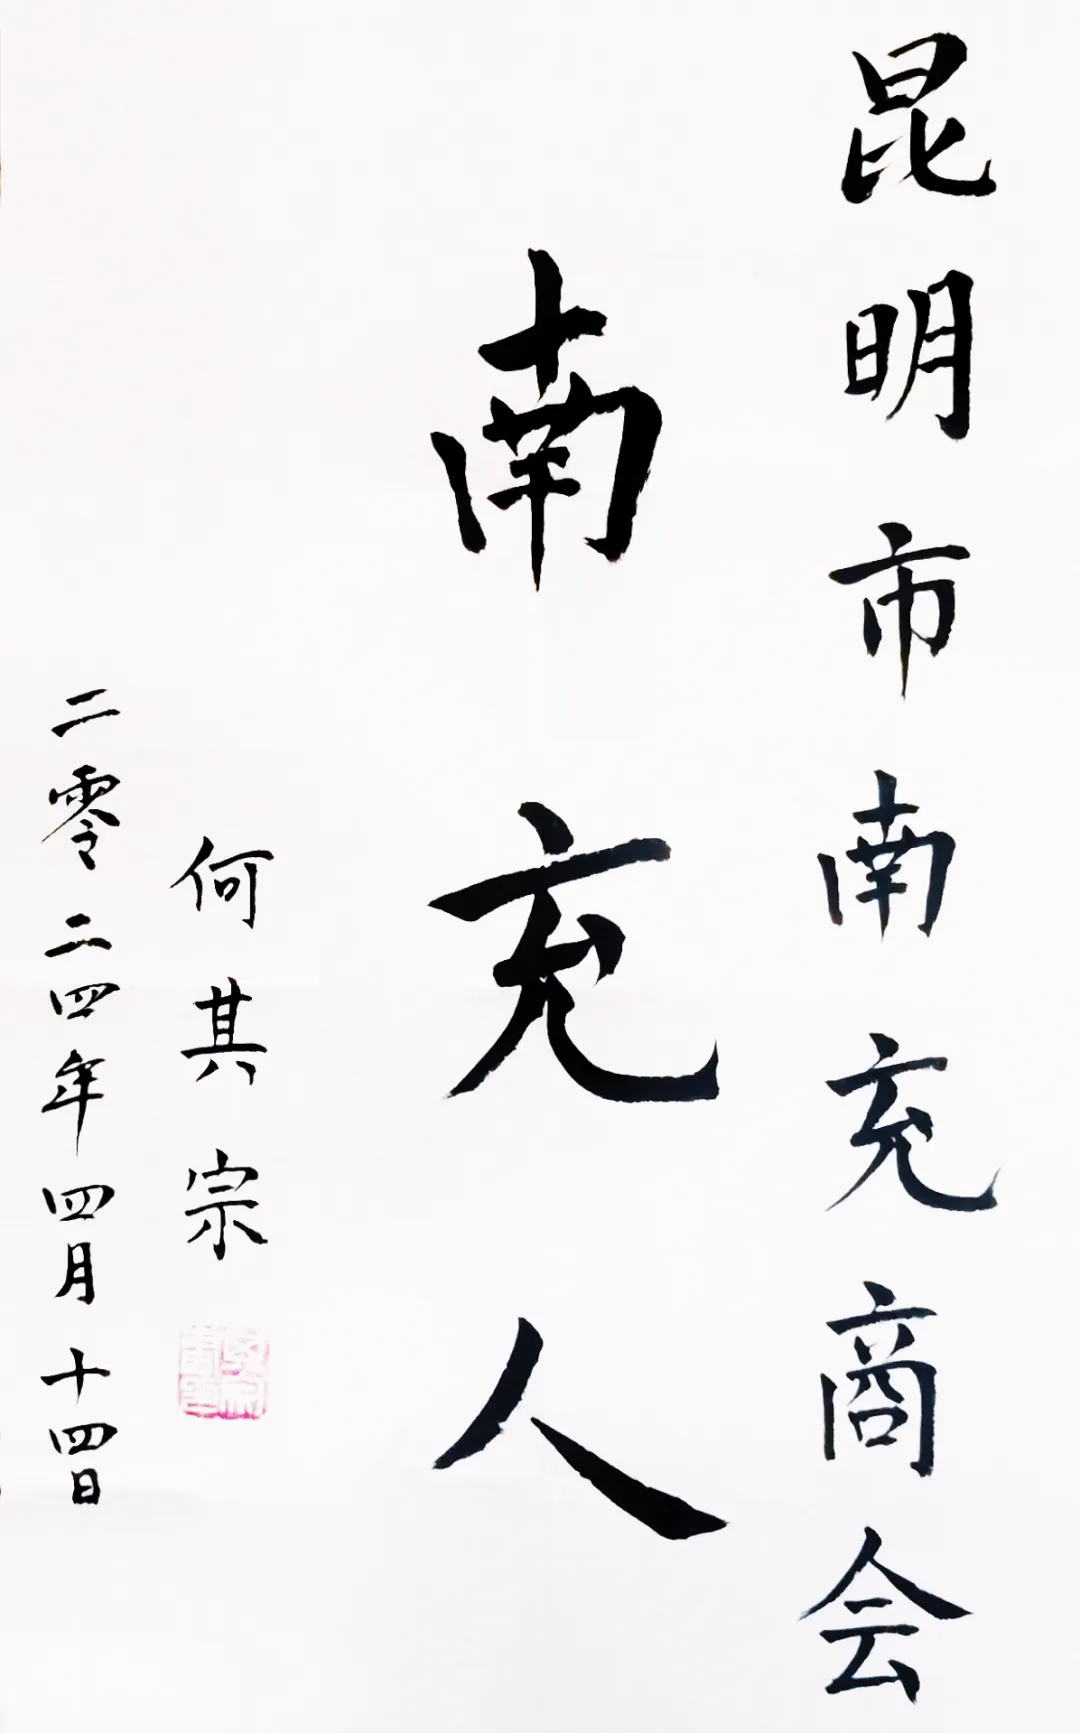 昆明市南充商会
南充人
何其宗
二零二四年四月十四日